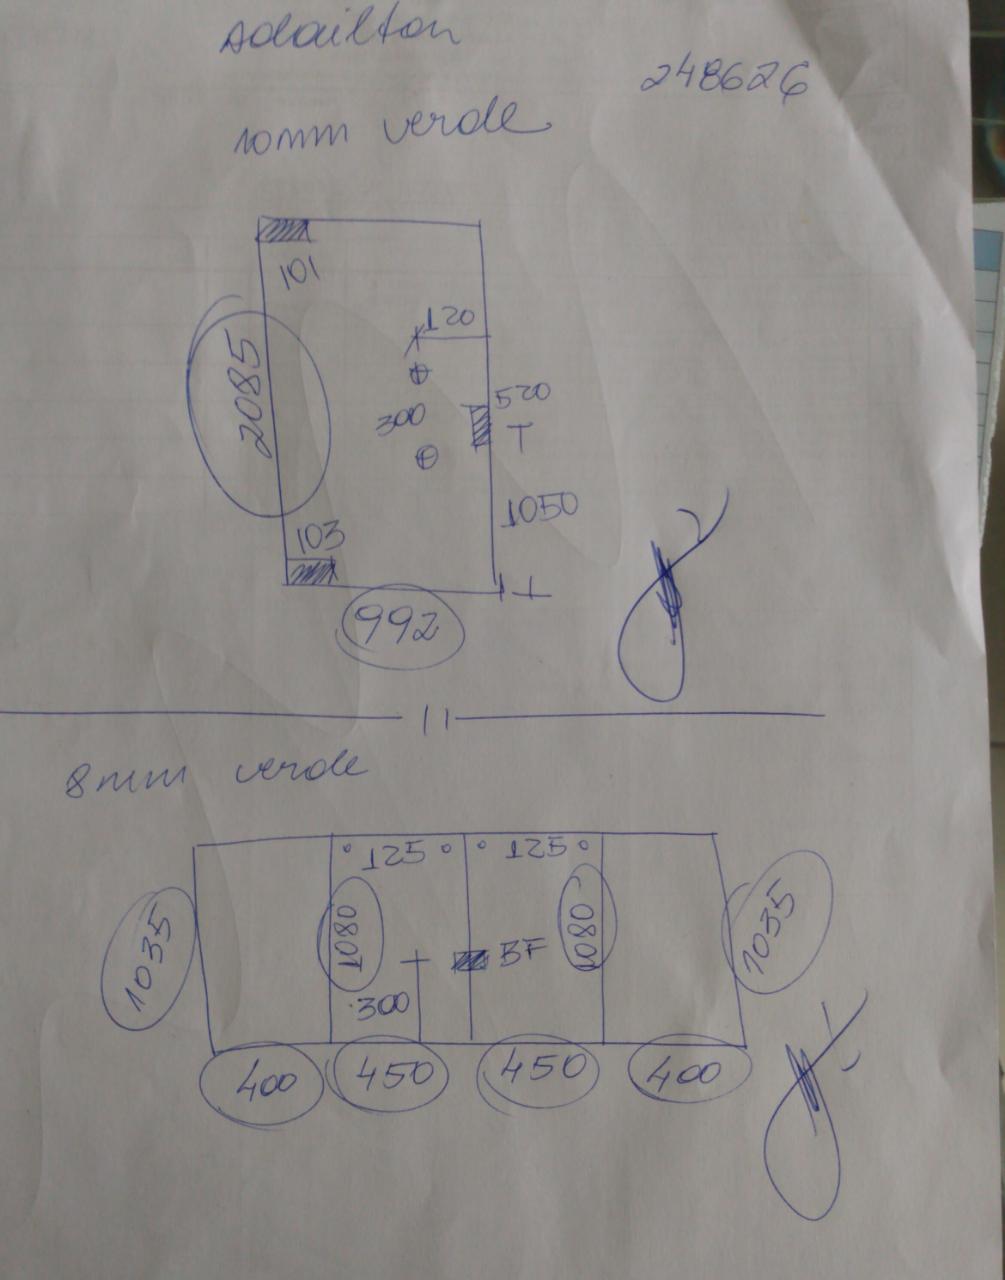 Adailton
248626
10mm verde
101
120
2085
520
300
T
1050
103
992
8mm verde
125 125
1035 1080 1080 1035
BF
300
400 450 450 400